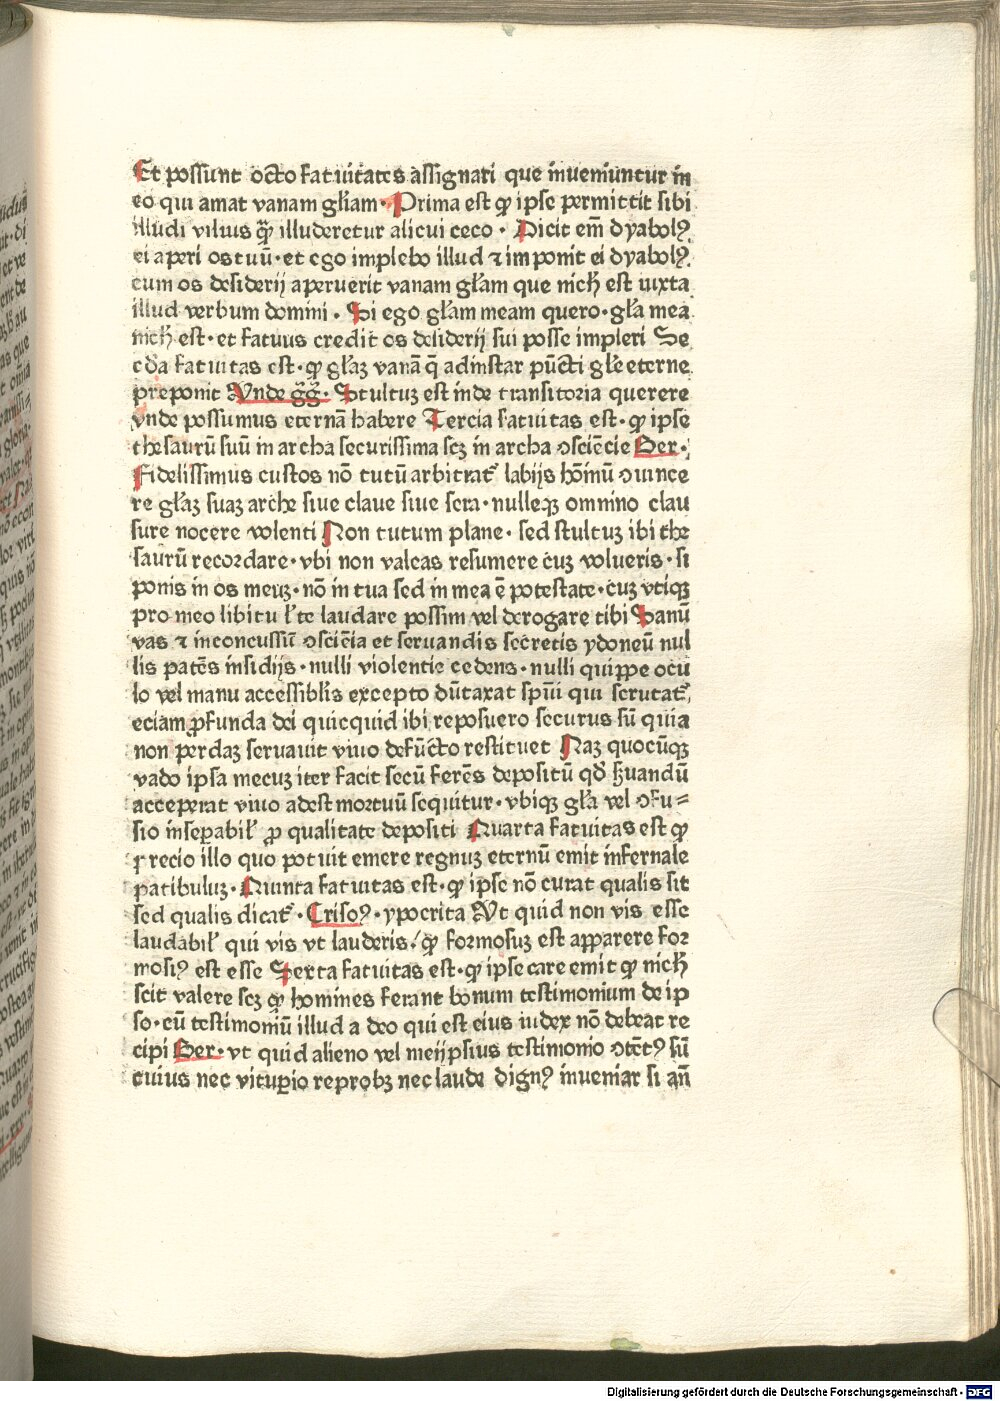 Et possunt octo fatuitates assignari que inueniuntur in
eo qui amat vanam głiam· Prima est ꝙ ipse permittit sibi
illudi vilius q̃ȝ illuderetur alicui ceco · Dicit em̄ dyabolꝰ
ei aperi os tuū·et ego implebo illud ⁊ imponit ei dyabolꝰ·
cum os desiderij aperuerit vanam głam que nichˀ est iuxta
illud verbum domini · Si ego głam meam quero·gła mea
nichˀ est·et fatuus credit os desiderij sui posse impleri Se
cūda fatuitas est·ꝙ głaȝ vanā q̄ adinstar pūcti głe eterne
preponit Vnde gg̃· Stultuȝ est inde transitoria querere
vnde possumus eternā habere Tercia fatuitas est·ꝙ ipse
thesaurū suū in archa securissima scȝ in archa ɔsciēcie Ber·
Fidelissimus custos nō tutū arbitratˀ labijs hōmū ɔuince
re głaȝ suaȝ arche siue claue siue sera·nulleqȝ omnino clau
sure nocere volenti Non tutum plane· sed stultuȝ ibi the
saurū recordare·vbi non valeas resumere cuȝ volueris·si
ponis in os meuȝ·nō in tua sed in mea ē potestate·cuȝ vtiqȝ
pro meo libitu ł te laudare possim vel derogare tibi Sanū
vas ⁊ inconcussū ɔsciēcia et seruandis secretis ydoneū nul
lis patēs insidijs·nulli violentie cedens·nulli quippe ocu
lo vel manu accessiblis excepto dūtaxat spūi qui scrutatˀ
eciam ꝓfunda dei quicquid ibi reposuero securus sū quia
non perdaȝ seruauit viuo defūcto restituet Naȝ quocūqȝ
vado ipsa mecuȝ iter facit secū ferēs depositū qđ ẜuandū
acceperat viuo adest mortuū sequitur·vbiqȝ gła vel ɔfu⸗
sio inseꝑabił ꝓ qualitate depositi Quarta fatuitas est ꝙ
precio illo quo potuit emere regnuȝ eternū emit infernale
patibuluȝ· Quinta fatuitas est·ꝙ ipse nō curat qualis sit
sed qualis dicatˀ · Crisoꝰ·ypocrita Vt quid non vis esse
laudabił qui vis vt lauderis/ꝙ formosuȝ est apparere for
mosiꝰ est esse Sexta fatuitas est·ꝙ ipse care emit ꝙ nichˀ
scit valere scȝ ꝙ homines ferant bonum testimonium de ip
so·cū testimoniū illud a deo qui est eius iudex nō debeat re
cipi Ber·vt quid alieno vel meijpsius testimonio ɔtētꝰ sū
cuius nec vituꝑio reprobȝ nec laude dignꝰ inueniar si an̄
Digitalisierung gefördert durch die Deutsche Forschungsgemeinschaft - DFG